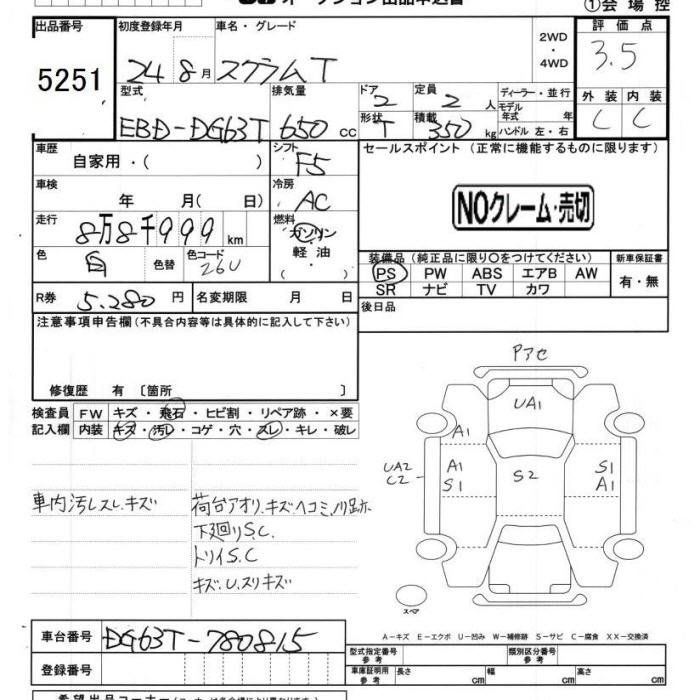 オークション出品申込書
①会場控
出品番号
5251
初度登録年月
24年8月
車名・グレード
スクラムT
2WD
・
4WD
評価点
3.5
型式
EBD-DG63T
排気量
650cc
ドア
2
形状
T
定員
2人
積載
350kg
ディーラー・並行
モデル年式 年
ハンドル 左・右
外装
C
内装
C
車歴
自家用・( )
シフト
F5
セールスポイント(正常に機能するものに限ります)
NOクレーム・売切
車検
年 月( 日)
冷房
AC
走行
8万8千999km
燃料
ガソリン
軽油
( ・ )
色
白
色替
色コード
26U
装備品(純正品に限り○をつけてください)
PS PW ABS エアB AW
SR ナビ TV カワ
新車保証書
有・無
R券
5.280円
名変期限 月 日
後日品
注意事項申告欄(不具合内容等は具体的に記入して下さい)
修復歴 有 〔箇所 〕
検査員記入欄
FW キズ・飛石・ヒビ割・リペア跡・×要
内装 キズ・汚レ・コゲ・穴・スレ・キレ・破レ
車内汚レスレ.キズ
荷台アオリ.キズヘコミ.ノリ跡
下廻りS.C.
トリイS.C
キズ.U.スリキズ
Pアセ
UA1
A1
UA2
C2
A1
S1
S2
S1
A1
スペア
A-キズ E-エクボ U-凹み W-補修跡 S-サビ C-腐食 XX-交換済
車台番号
DG63T-780815
登録番号
型式指定番号
参考
類別区分番号
参考
車庫証明用
参考
長さ cm
幅 cm
高さ cm